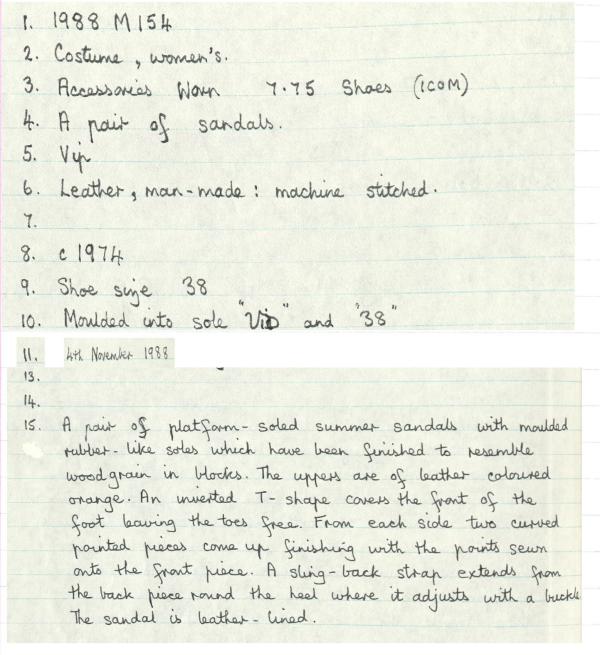 1. 1988 M 154
2. Costume, women's.
3. Accessories Worn 7.75 Shoes (ICOM)
4. A pair of sandals.
5. Vip
6. Leather, man-made: machine stitched.
7.
8. c 1974
9. Shoe size 38
10. Moulded into sole "Vip" and "38"
11. 4th November 1988
13.
14.
15. A pair of platform-soled summer sandals with moulded
rubber-like soles which have been finished to resemble
woodgrain in blocks. The uppers are of leather coloured
orange. An inverted T-shape covers the front of the
foot leaving the toes free. From each side two curved
pointed pieces come up finishing with the points sewn
onto the front piece. A sling-back strap extends from
the back piece round the heel where it adjusts with a buckle
The sandal is leather-lined.